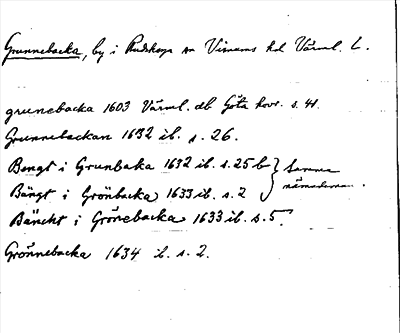 Grunnebacka, by i Rudskoga sn Visnums hd Värml. L.
grunebacka 1603 Värml. db Göta hovr. s. 41.
Grunnebackan 1632 ib. s. 26.
Bengt i Grunbaka 1632 ib. s. 25 b } Samma
Bängt i Grönbacka 1633 ib. s. 2 nämndeman.
Bäncht i Grönebacka 1633 ib. s. 5.
Grönnebacka 1634 ib. s. 2.